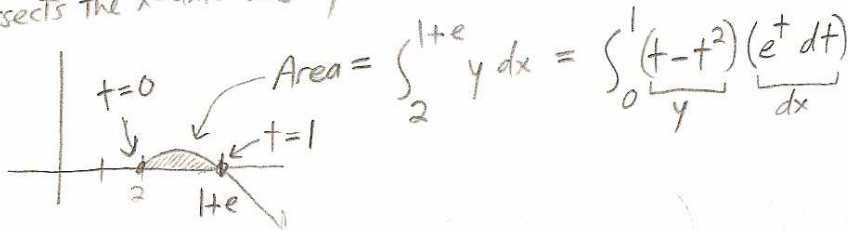 sects the x-axis
Area = ∫₂^{1+e} y dx = ∫₀^1 (t - t²) (e^t dt)
y dx
t=0
t=1
2 1+e